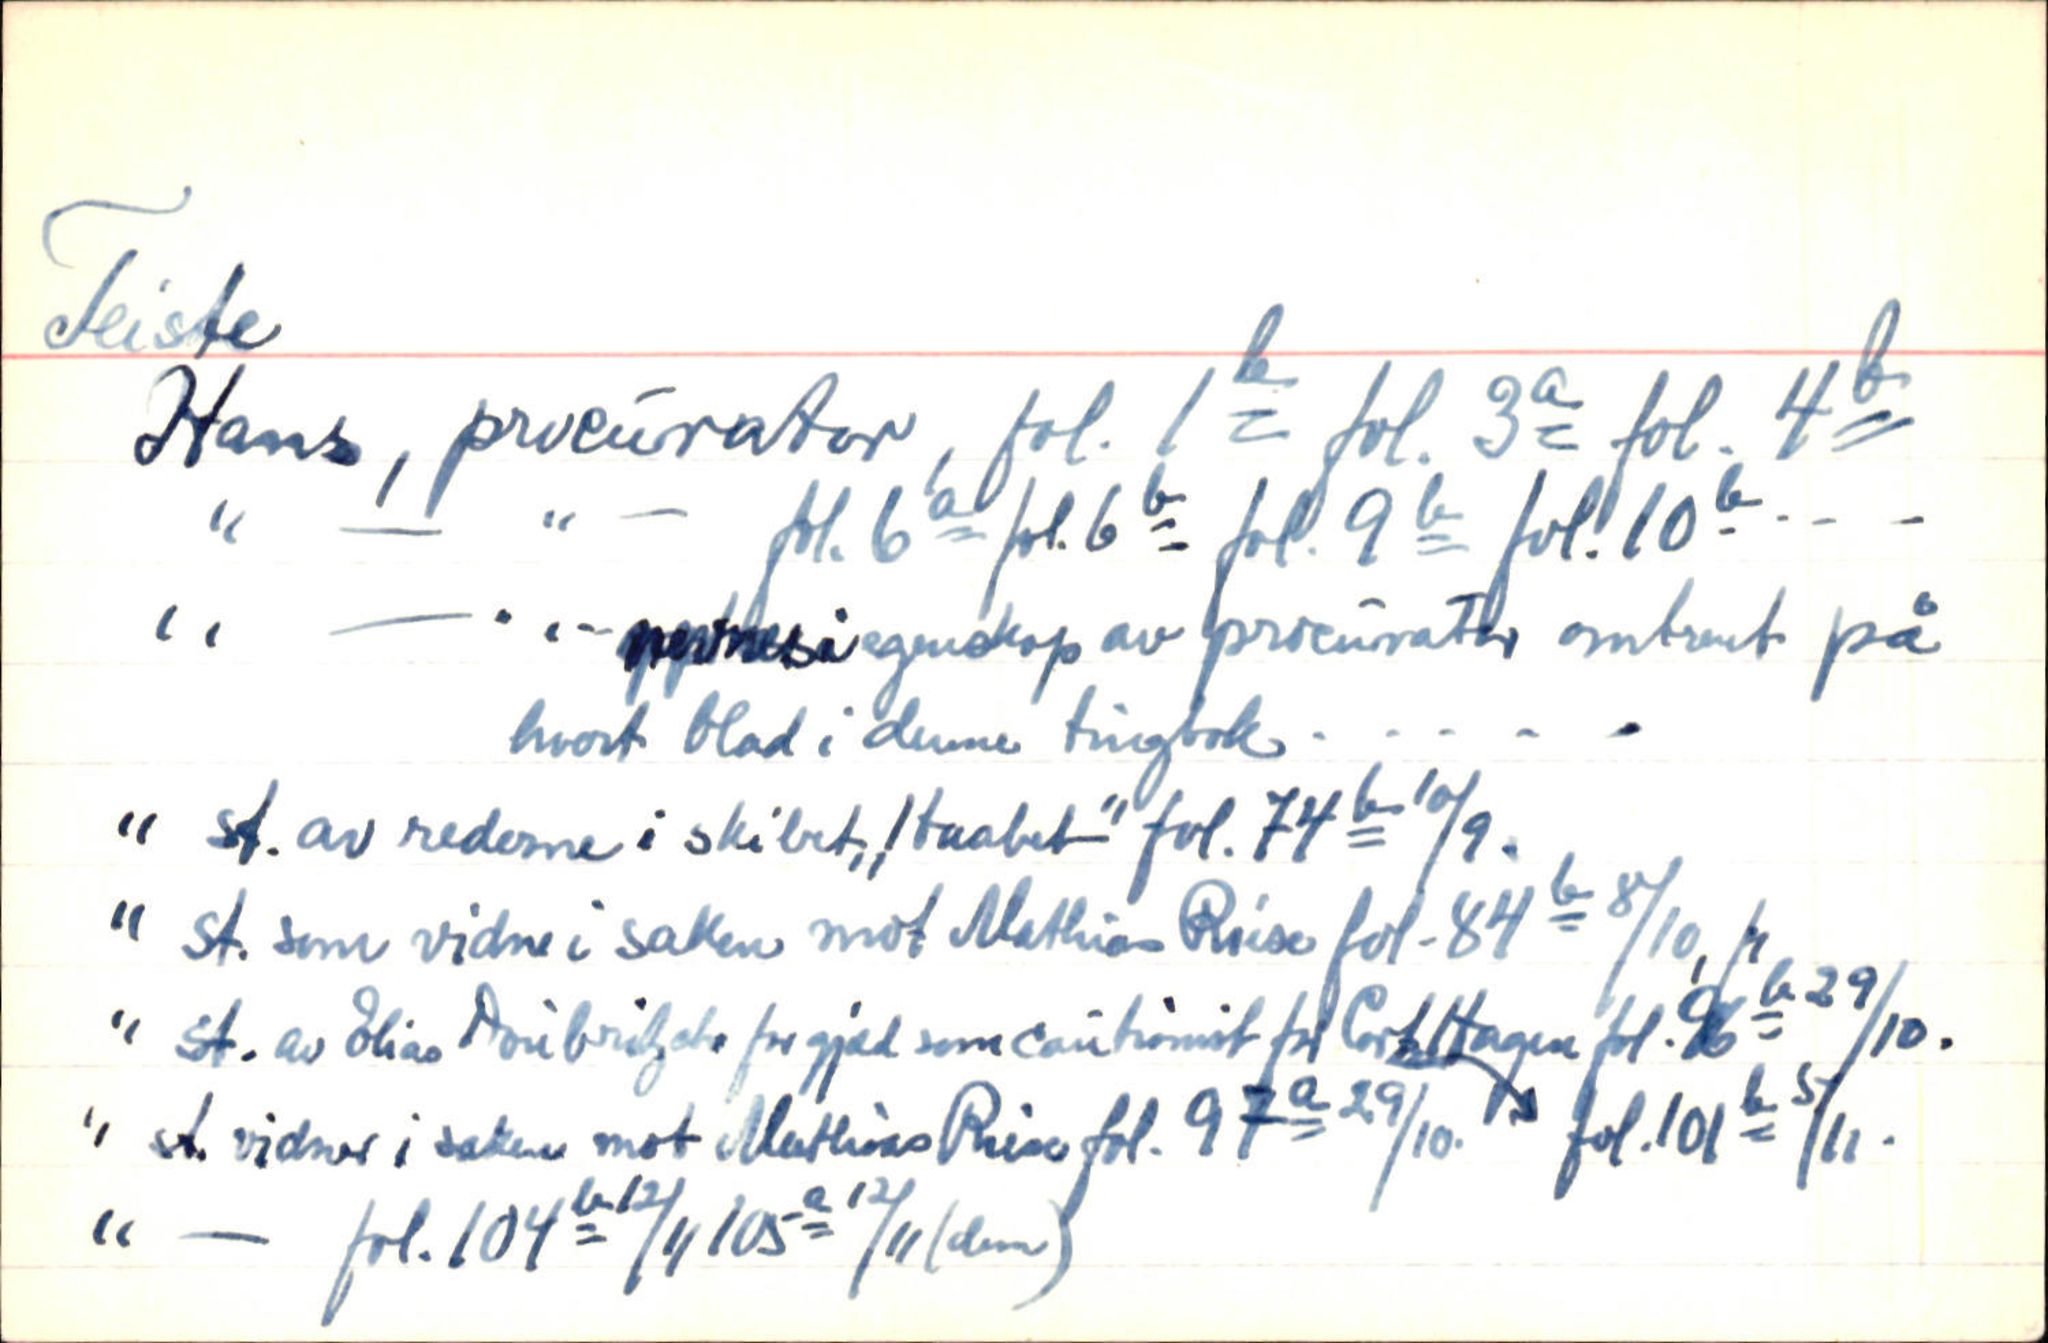 Teiste
Hans, procurator, fol. 1b fol. 3a fol. 4b
" — " — fol. 6a fol. 6b fol. 9b fol. 10b - - -
" — " - nevnes i egenskap av procurator omtrent på
hvert blad i denne tingbok . - - - -
" st. av rederne i skibet „Haabet" fol. 74b 10/9.
" st. som vidne i saken mot Mathias Riise fol. 84b 8/10,
" st. av Elias for gjæld som cautionist for Cort Hagen fol. 96b 29/10.
" st. vidner i saken mot Mathias Riise fol. 97a 29/10. fol. 101b 5/11.
" — fol. 104b 12/11 105a 12/11 (dom)